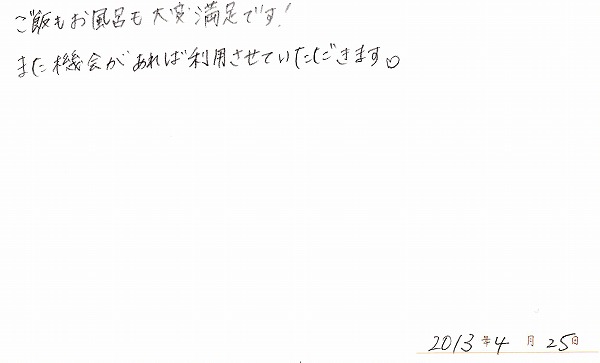 ご飯もお風呂も大変満足です!
また機会があれば利用させていただきます♡
2013年4月25日